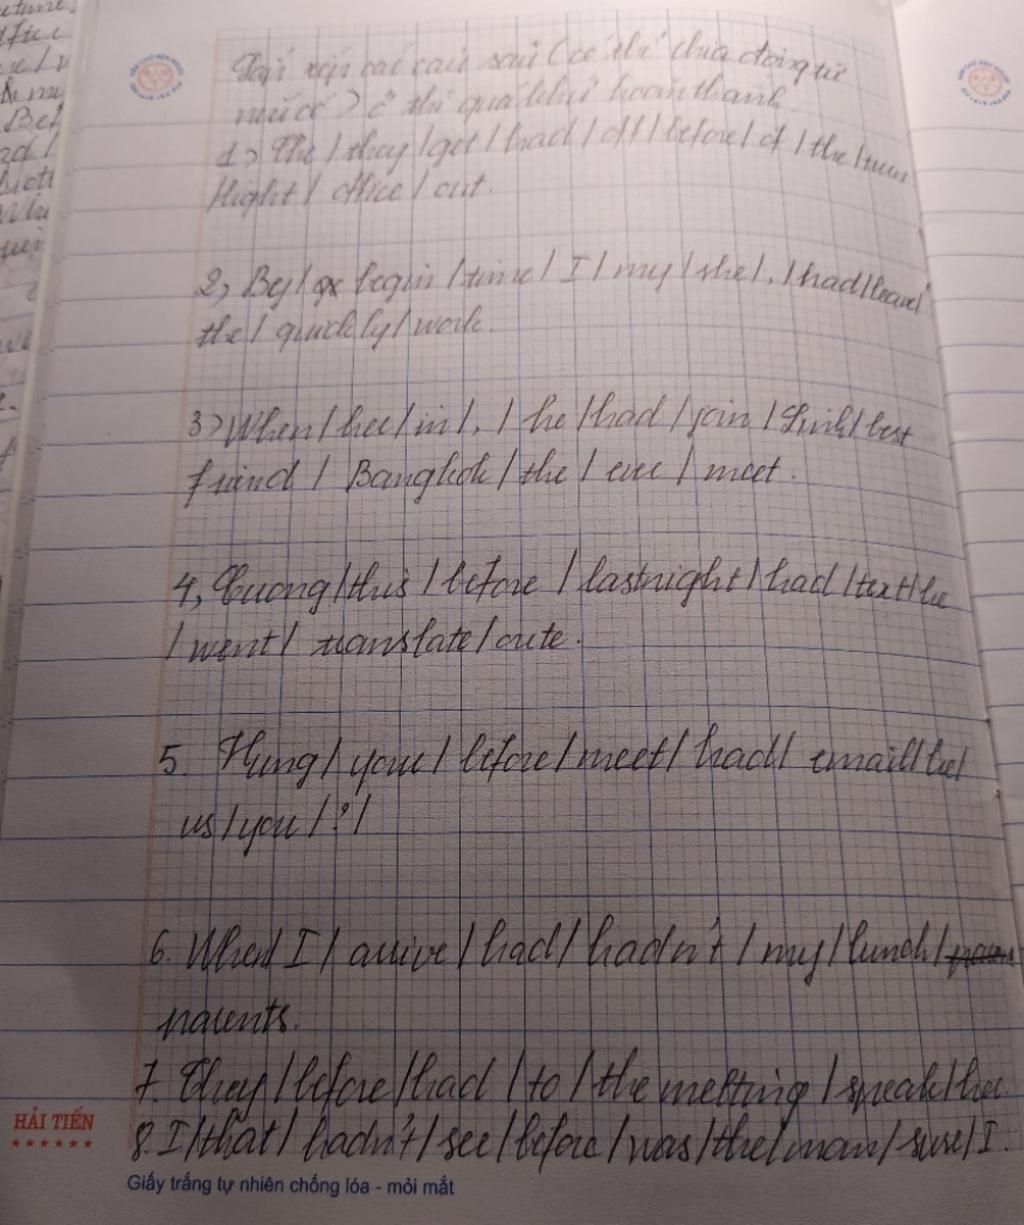 Sắp xếp các câu sau (có thể chia động từ
nếu có) ở thì quá khứ hoàn thành
1) The / they / get / had / off / before / of / the / turn
light / office / out.
2, By / begin / time / I / my / she / , / had / leave /
the / quickly / work.
3) When / her / in / , / he / had / join / Linh / best
friend / Bangkok / the / eve / meet.
4, Cuong / this / before / last night / had / text / he
/ went / translate / oute.
5. Hung / your / before / meet / had / email / he /
us / you / ? /
6. When / I / arrive / had / hadn't / my / lunch /
parents.
7. They / before / had / to / the metting / speak / her.
8. I / that / hadn't / see / before / was / the / man / sure / I.
HẢI TIẾN
Giấy trắng tự nhiên chống lóa - mỏi mắt